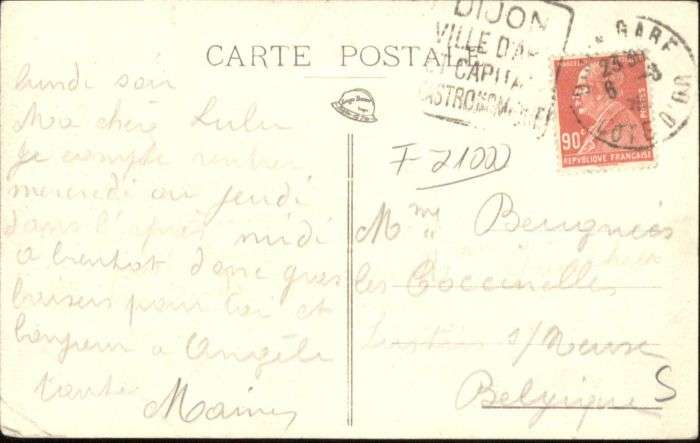 CARTE POSTALE
DIJON
VILLE D'A
ET CAPITA
GASTRONOM
GARE
CÔTE D'OR
90c
REPUBLIQUE FRANÇAISE
F-21000
lundi soir
Ma chère Lulu
Je compte rentrer
mercredi ou jeudi
dans l'après midi
a bientot donc gros
baisers pour toi et
bonjour a Angèle
tante
Mme Beugnies
les Coccinelles
Lustin s/Meuse
Belgique
S